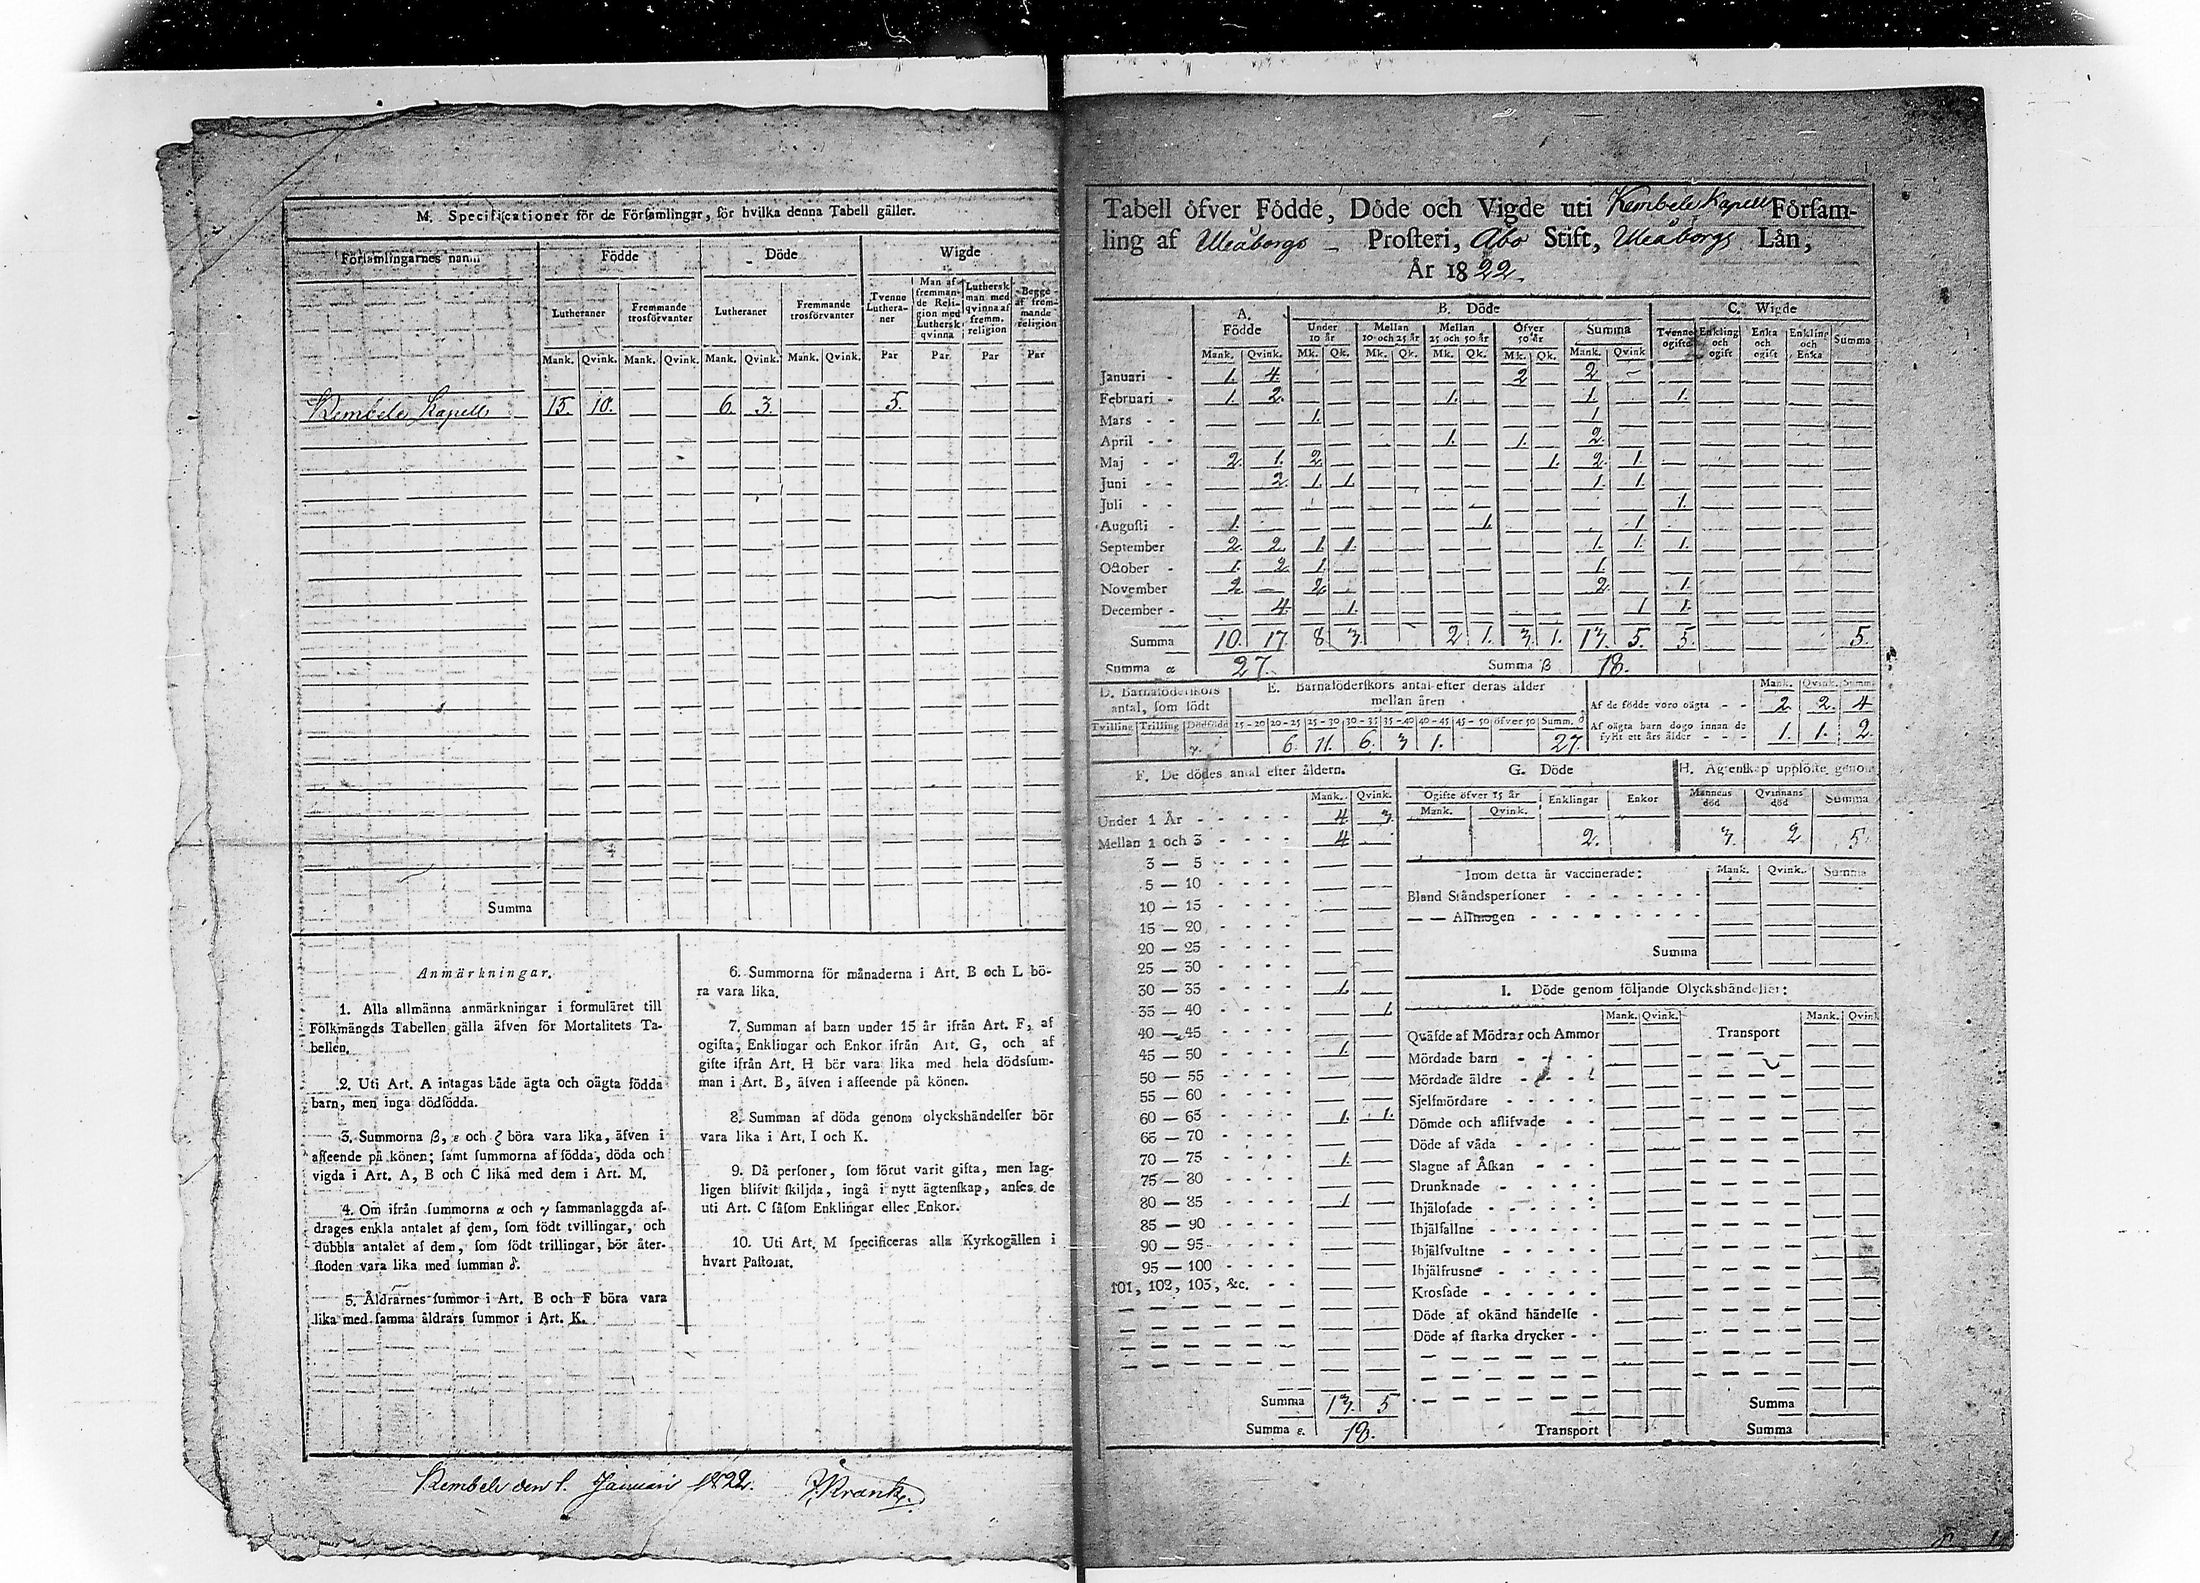 M. Specificationer för de Församlingar, för hvilka denna Tabell gäller.
Församlingarnes namn Födde Döde Wigde
Lutheraner Fremmande trosförvanter Lutheraner Fremmande trosförvanter Tvenne Lutheraner Man af fremmande Religion med Luthersk qvinna Luthersk man med qvinna af fremm. religion Begge af fremmande religion
Mank. Qvink. Mank. Qvink. Mank. Qvink. Mank. Qvink. Par Par Par Par
Kembele Kapell 15. 10. — — 6. 3. — — 5. — — —
Summa
Anmärkningar.
1. Alla allmänna anmärkningar i formuläret till
Folkmängds Tabellen gälla äfven för Mortalitets Ta-
bellen.
2. Uti Art. A intagas både ägta och oägta födda
barn, men inga dödfödda.
3. Summorna β, ε och ζ böra vara lika, äfven i
afseende på könen; samt summorna af födda, döda och
vigda i Art. A, B och C lika med dem i Art. M.
4. Om ifrån summorna α och γ sammanlaggda af-
drages enkla antalet af dem, som födt tvillingar, och
dubbla antalet af dem, som födt trillingar, bör åter-
stoden vara lika med summan δ.
5. Åldrarnes summor i Art. B och F böra vara
lika med samma åldrars summor i Art. K.
6. Summorna för månaderna i Art. B och L bö-
ra vara lika.
7. Summan af barn under 15 år ifrån Art. F, af
ogifta, Enklingar och Enkor ifrån Art. G, och af
gifte ifrån Art. H bör vara lika med hela dödssum-
man i Art. B, äfven i afseende på könen.
8. Summan af döda genom olyckshändelser bör
vara lika i Art. I och K.
9. Då personer, som förut varit gifta, men lag-
ligen blifvit skiljda, ingå i nytt ägtenskap, anses de
uti Art. C såsom Enklingar eller Enkor.
10. Uti Art. M specificeras alla Kyrkogällen i
hvart Pastorat.
Kembele den 1. Januari 1822.
Tabell öfver Födde, Döde och Vigde uti Kembele Kapell Församl-
ling af Uleåborgs Prosteri, Åbo Stift, Uleåborgs Län,
År 1822.
A. Födde B. Döde C. Wigde
Under 10 år Mellan 10 och 25 år Mellan 25 och 50 år Öfver 50 år Summa Tvenne ogifta Enkling och ogift Enka och ogift Enkling och Enka Summa
Mank. Qvink. Mk. Qk. Mk. Qk. Mk. Qk. Mk. Qk. Mank. Qvink
Januari 1. 4. — — — — — — 2 — 2 —
Februari 1. 2. — — — — 1. — — — 1. — 1.
Mars — — 1. — — — — — — — 1
April — — — — — — 1. — 1. — 2.
Maj 2. 1. 2. — — — — — — 1. 2. 1.
Juni — 2. 1. 1. — — — — — — 1. 1.
Juli — — — — — — — — — — — — 1.
Augusti 1. — — — — — — 1. — — — 1
September 2. 2. 1. 1. — — — — — — 1. 1. 1.
October 1. 2 1. — — — — — — — 1.
November 2 — 2. — — — — — — — 2. — 1.
December — 4. — 1. — — — — — — — 1 1.
Summa 10. 17. 8. 3. 2 1. 3. 1. 13. 5. 5. 5.
Summa α 27. Summa β 18.
D. Barnaföderskors antal, som födt
E. Barnaföderskors antal efter deras ålder mellan åren
Mank. Qvink. Summ.
Af de födde voro oägta 2. 2. 4
Af oägta barn dogo innan de fyllt ett års ålder 1. 1. 2.
Tvilling Trilling Dödfödde 15-20 20-25 25-30 30-35 35-40 40-45 45-50 öfver 50 Summ. δ
γ. 6. 11. 6. 3 1. 27.
F. De dödes antal efter åldern.
Mank. Qvink.
Under 1 År 4. 3
Mellan 1 och 3 4.
3 — 5
5 — 10
10 — 15
15 — 20
20 — 25
25 — 30
30 — 35 1.
35 — 40 1.
40 — 45
45 — 50 1.
50 — 55
55 — 60
60 — 65 1. 1.
65 — 70
70 — 75 1.
75 — 80
80 — 85 1
85 — 90
90 — 95
95 — 100
101, 102, 103, &c.
Summa 13. 5
Summa ε. 18.
G. Döde
Ogifte öfver 15 år Enklingar Enkor
Mank. Qvink.
2.
H. Ägtenskap upplöste genom
Mannens död Qvinnans död Summa
3. 2 5.
Inom detta år vaccinerade: Mank. Qvink. Summa
Bland Ståndspersoner
— — Allmogen
Summa
I. Döde genom följande Olyckshändelser:
Mank. Qvink. Transport Mank. Qvink
Qväfde af Mödrar och Ammor
Mördade barn
Mördade äldre
Sjelfmördare
Dömde och aflifvade
Döde af våda
Slagne af Åskan
Drunknade
Ihjälosade
Ihjälfallne
Ihjälsvultne
Ihjälfrusne
Krossade
Döde af okänd händelse
Döde af starka drycker
Summa
Transport Summa